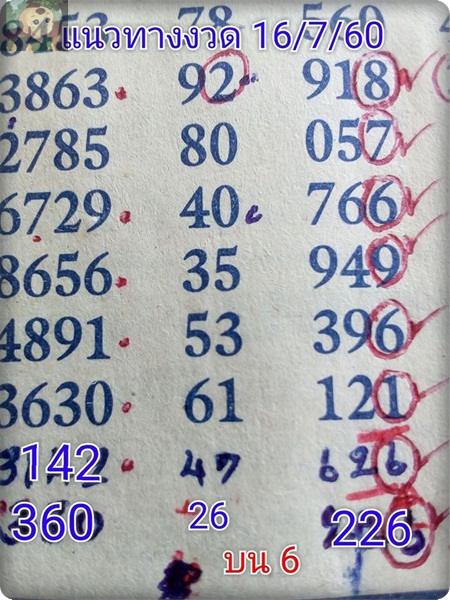 แนวทางงวด 16/7/60
78 560
3863 92 918
2785 80 057
6729 40 766
8656 35 949
4891 53 396
3630 61 121
142 47 626
360 26 226
บน 6